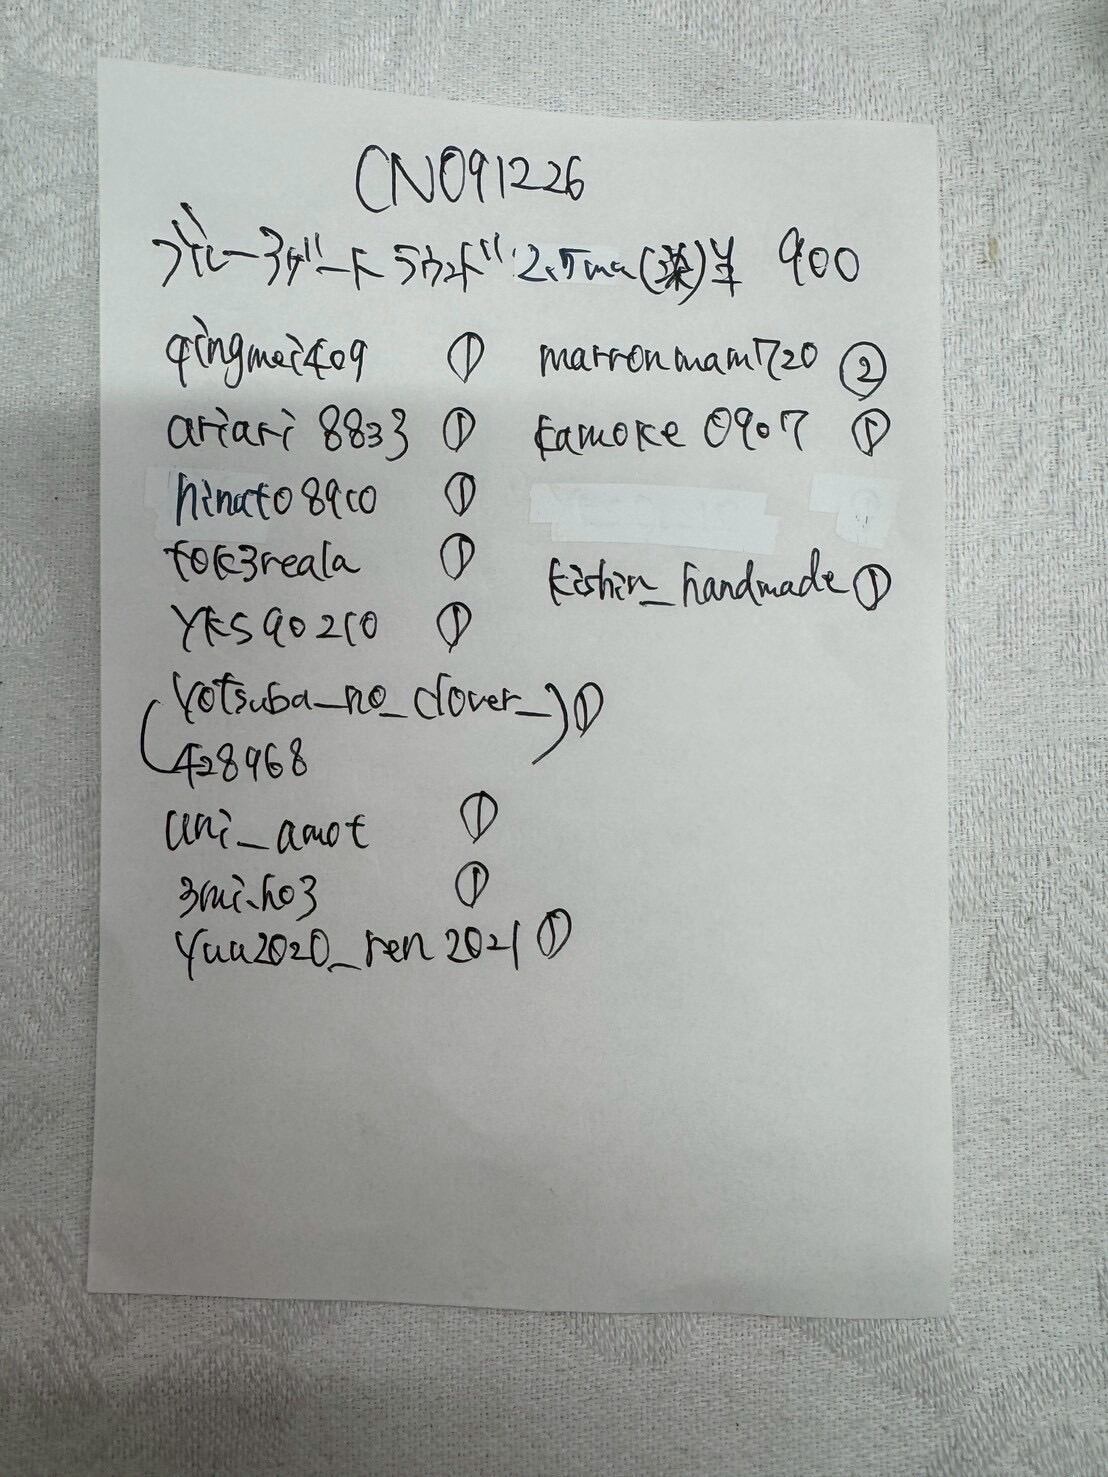 CN091226
ブルーアゲート ラウンド 2.5mm(染)¥ 900
qingmei409 ①
ariari 8833 ①
hinato8910 ①
tok3reala ①
YKS90210 ①
(yotsuba_no_clover_
428968) ①
uni_amot ①
3miho3 ①
yuu2020_ren2021 ①
marronmam720 ②
kamoke0907 ①
kishin_handmade ①